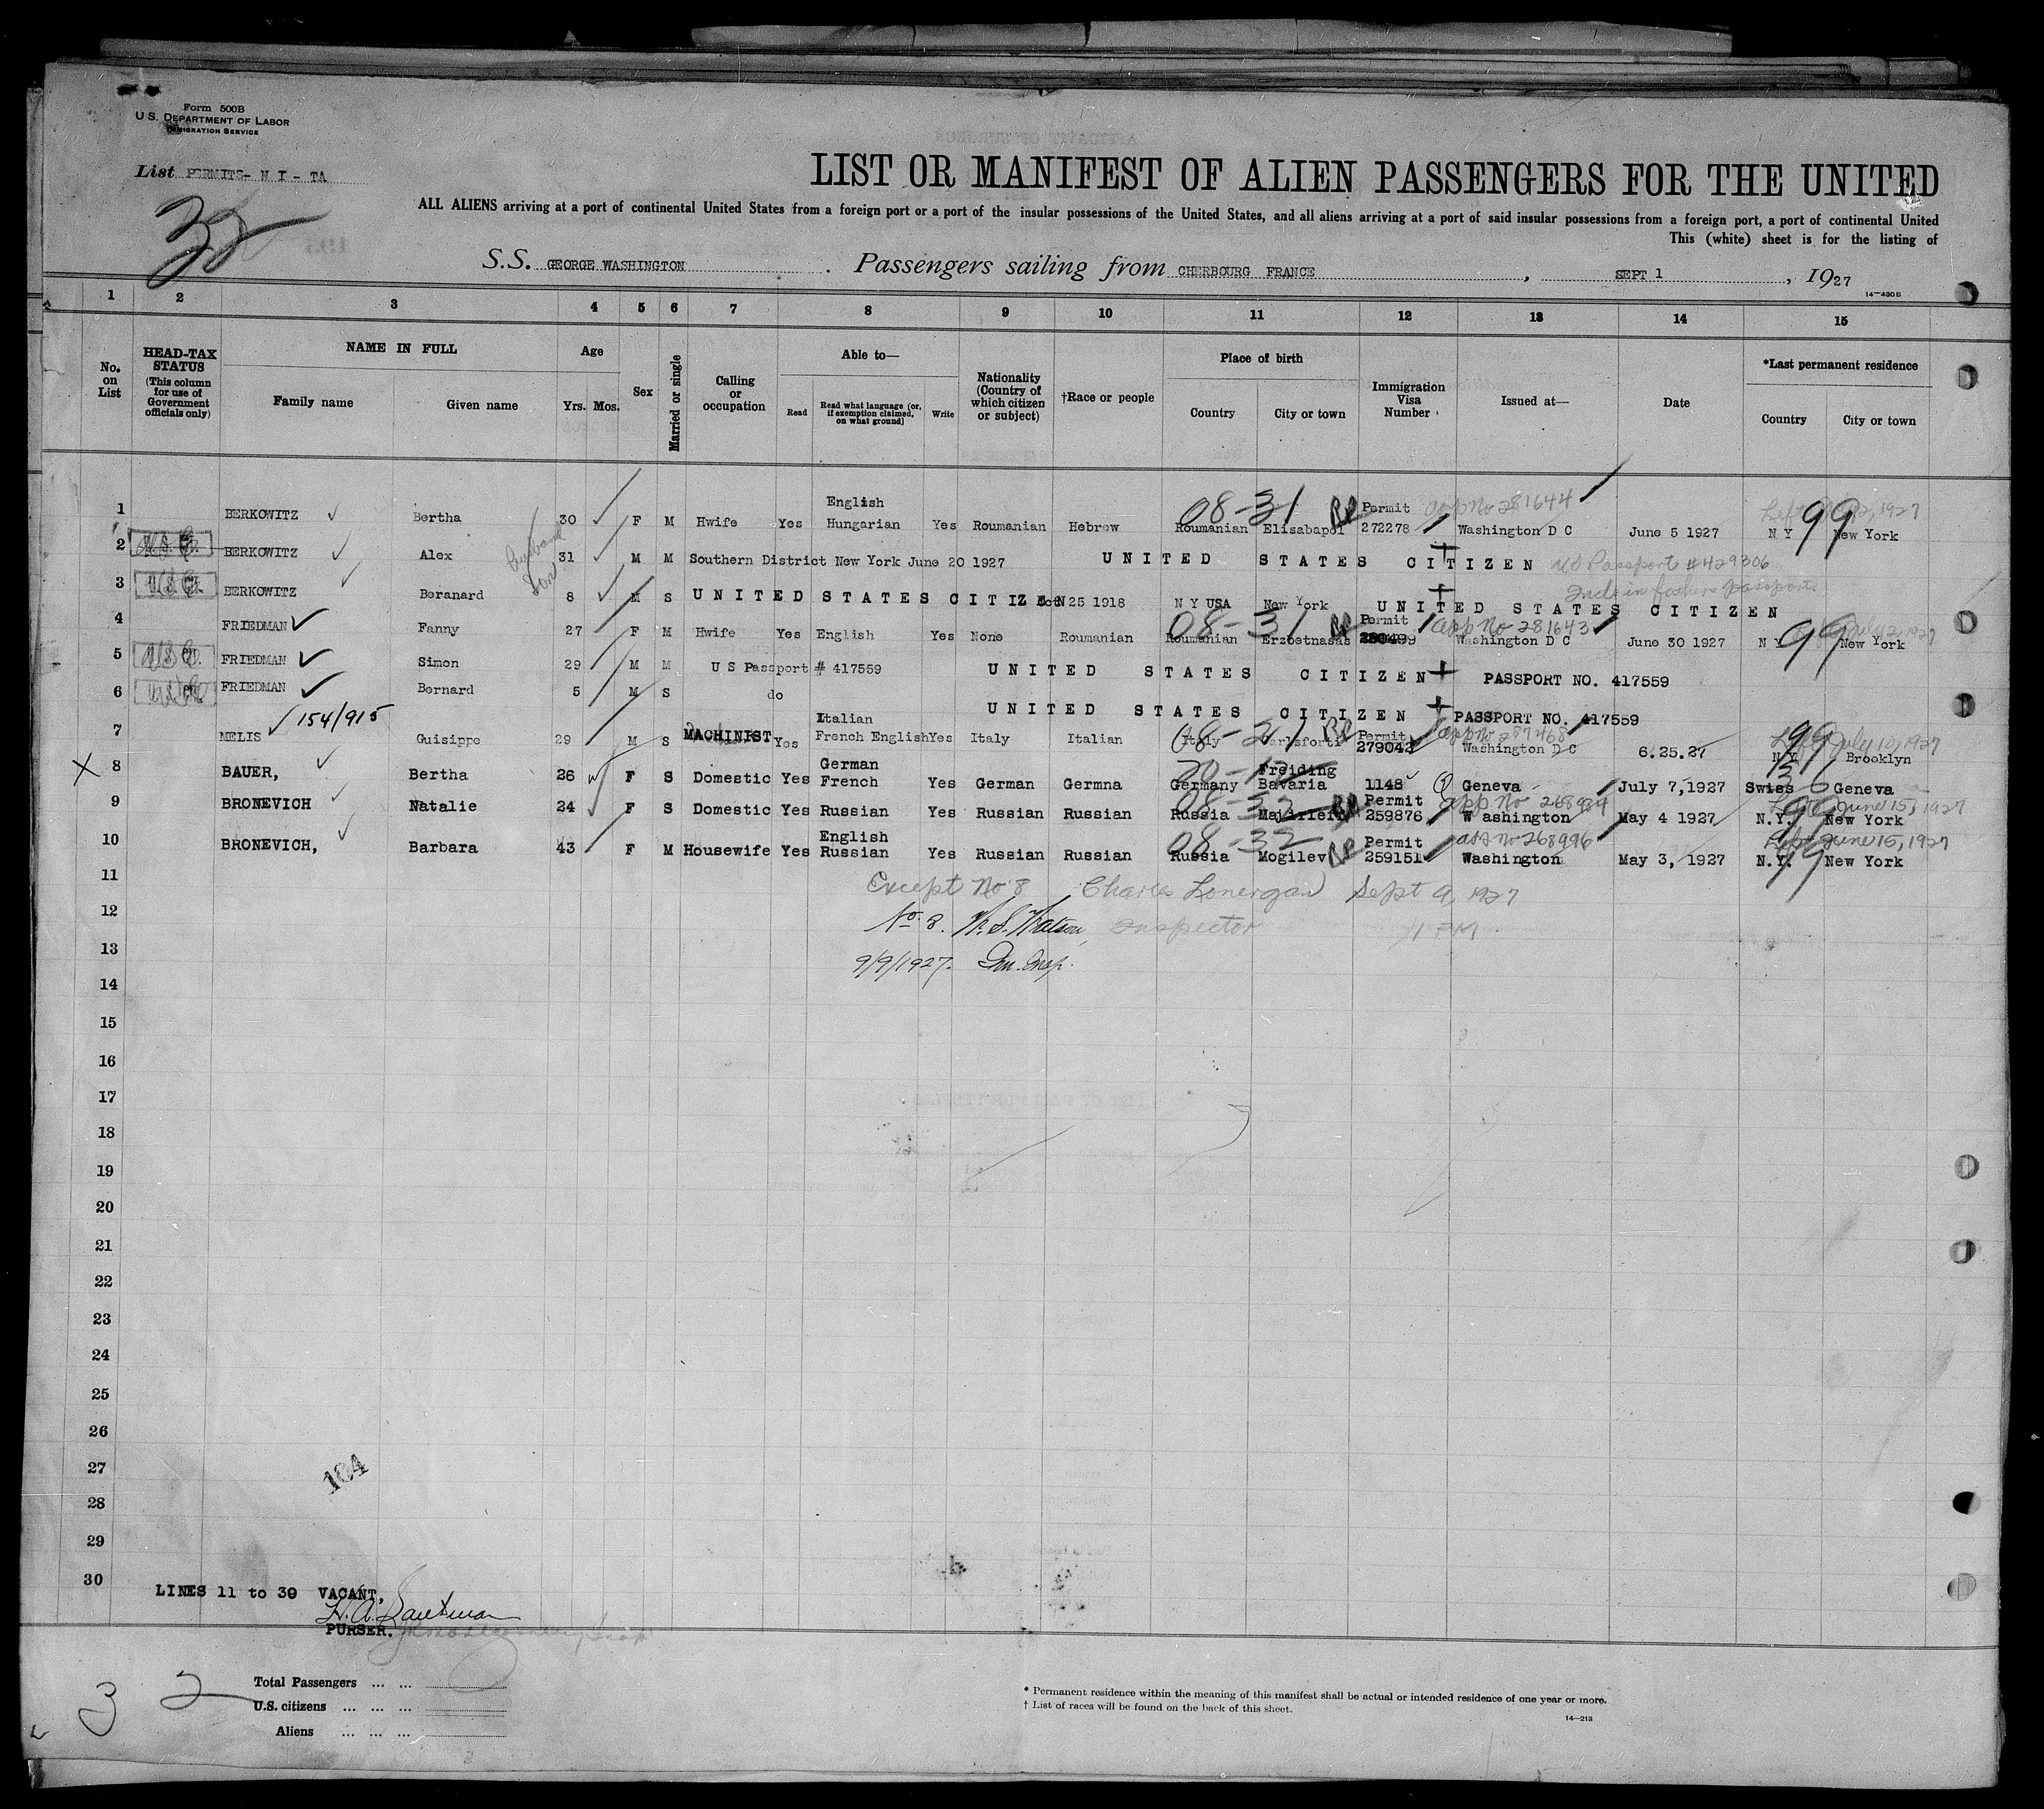 Form 500B
U.S. DEPARTMENT OF LABOR
IMMIGRATION SERVICE
List PERMITS- N I - TA
32
LIST OR MANIFEST OF ALIEN PASSENGERS FOR THE UNITED
ALL ALIENS arriving at a port of continental United States from a foreign port or a port of the insular possessions of the United States, and all aliens arriving at a port of said insular possessions from a foreign port, a port of continental United
This (white) sheet is for the listing of
S.S. GEORGE WASHINGTON. Passengers sailing from CHERBOURG FRANCE, SEPT 1, 1927
14-430B
1 2 3 4 5 6 7 8 9 10 11 12 13 14 15
No. on List
HEAD-TAX STATUS (This column for use of Government officials only)
NAME IN FULL
Family name Given name
Age
Yrs. Mos.
Sex
Married or single
Calling or occupation
Able to—
Read Read what language (or, if exemption claimed, on what ground) Write
Nationality (Country of which citizen or subject)
†Race or people
Place of birth
Country City or town
Immigration Visa Number
Issued at—
Date
*Last permanent residence
Country City or town
1 BERKOWITZ Bertha 30 F M Hwife Yes English Hungarian Yes Roumanian Hebrew 08-31 Roumanian Elisabapol Permit 272278 app No 281644 Washington D C June 5 1927 99 N Y New York
2 U.S. BERKOWITZ Alex husband 31 M M Southern District New York June 20 1927 UNITED STATES CITIZEN US Passport #429306
3 BERKOWITZ Beranard son 8 M S UNITED STATES CITIZEN 25 1918 N Y USA New York UNITED STATES CITIZEN Incl. in father's passport
4 FRIEDMAN Fanny 27 F M Hwife Yes English Yes None Roumanian 08-31 Roumanian Erzbetnasas Permit app No 281643 Washington D C June 30 1927 99 N Y New York
5 FRIEDMAN Simon 29 M M U S Passport # 417559 UNITED STATES CITIZEN PASSPORT NO. 417559
6 FRIEDMAN Bernard 5 M S do UNITED STATES CITIZEN PASSPORT NO. 417559
7 MELIS 154/915 Guisippe 29 M S MACHINIST Yes Italian French English Yes Italy Italian Italy Permit 279042 Washington D C 6.25.27 Left July 10, 1927 99 N Y Brooklyn
8 BAUER, Bertha 26 F S Domestic Yes German French Yes German Germna Germany Freiding Bavaria 1148 Geneva July 7, 1927 Swiss 36 Geneva
9 BRONEVICH Natalie 24 F S Domestic Yes Russian Yes Russian Russian 08-32 Russia Permit 259876 app No Washington May 4 1927 Left June 15, 1927 99 N.Y. New York
10 BRONEVICH, Barbara 43 F M Housewife Yes English Russian Yes Russian Russian 08-32 Russia Mogilev Permit 259151 app No 268996 Washington May 3, 1927 Left June 15, 1927 99 N.Y. New York
11 Except No 8 Charles Lonergan Sept 9, 1927
12 No 8. W. S. Watson, Inspector 1 PM
13 9/9/1927. Im. Insp.
14
15
16
17
18
19
20
21
22
23
24
25
26
27
104
28
29
30 LINES 11 to 30 VACANT,
PURSER.
3 2
Total Passengers ... ...
U.S. citizens ... ... ...
Aliens ... ... ...
* Permanent residence within the meaning of this manifest shall be actual or intended residence of one year or more.
† List of races will be found on the back of this sheet.
14—213